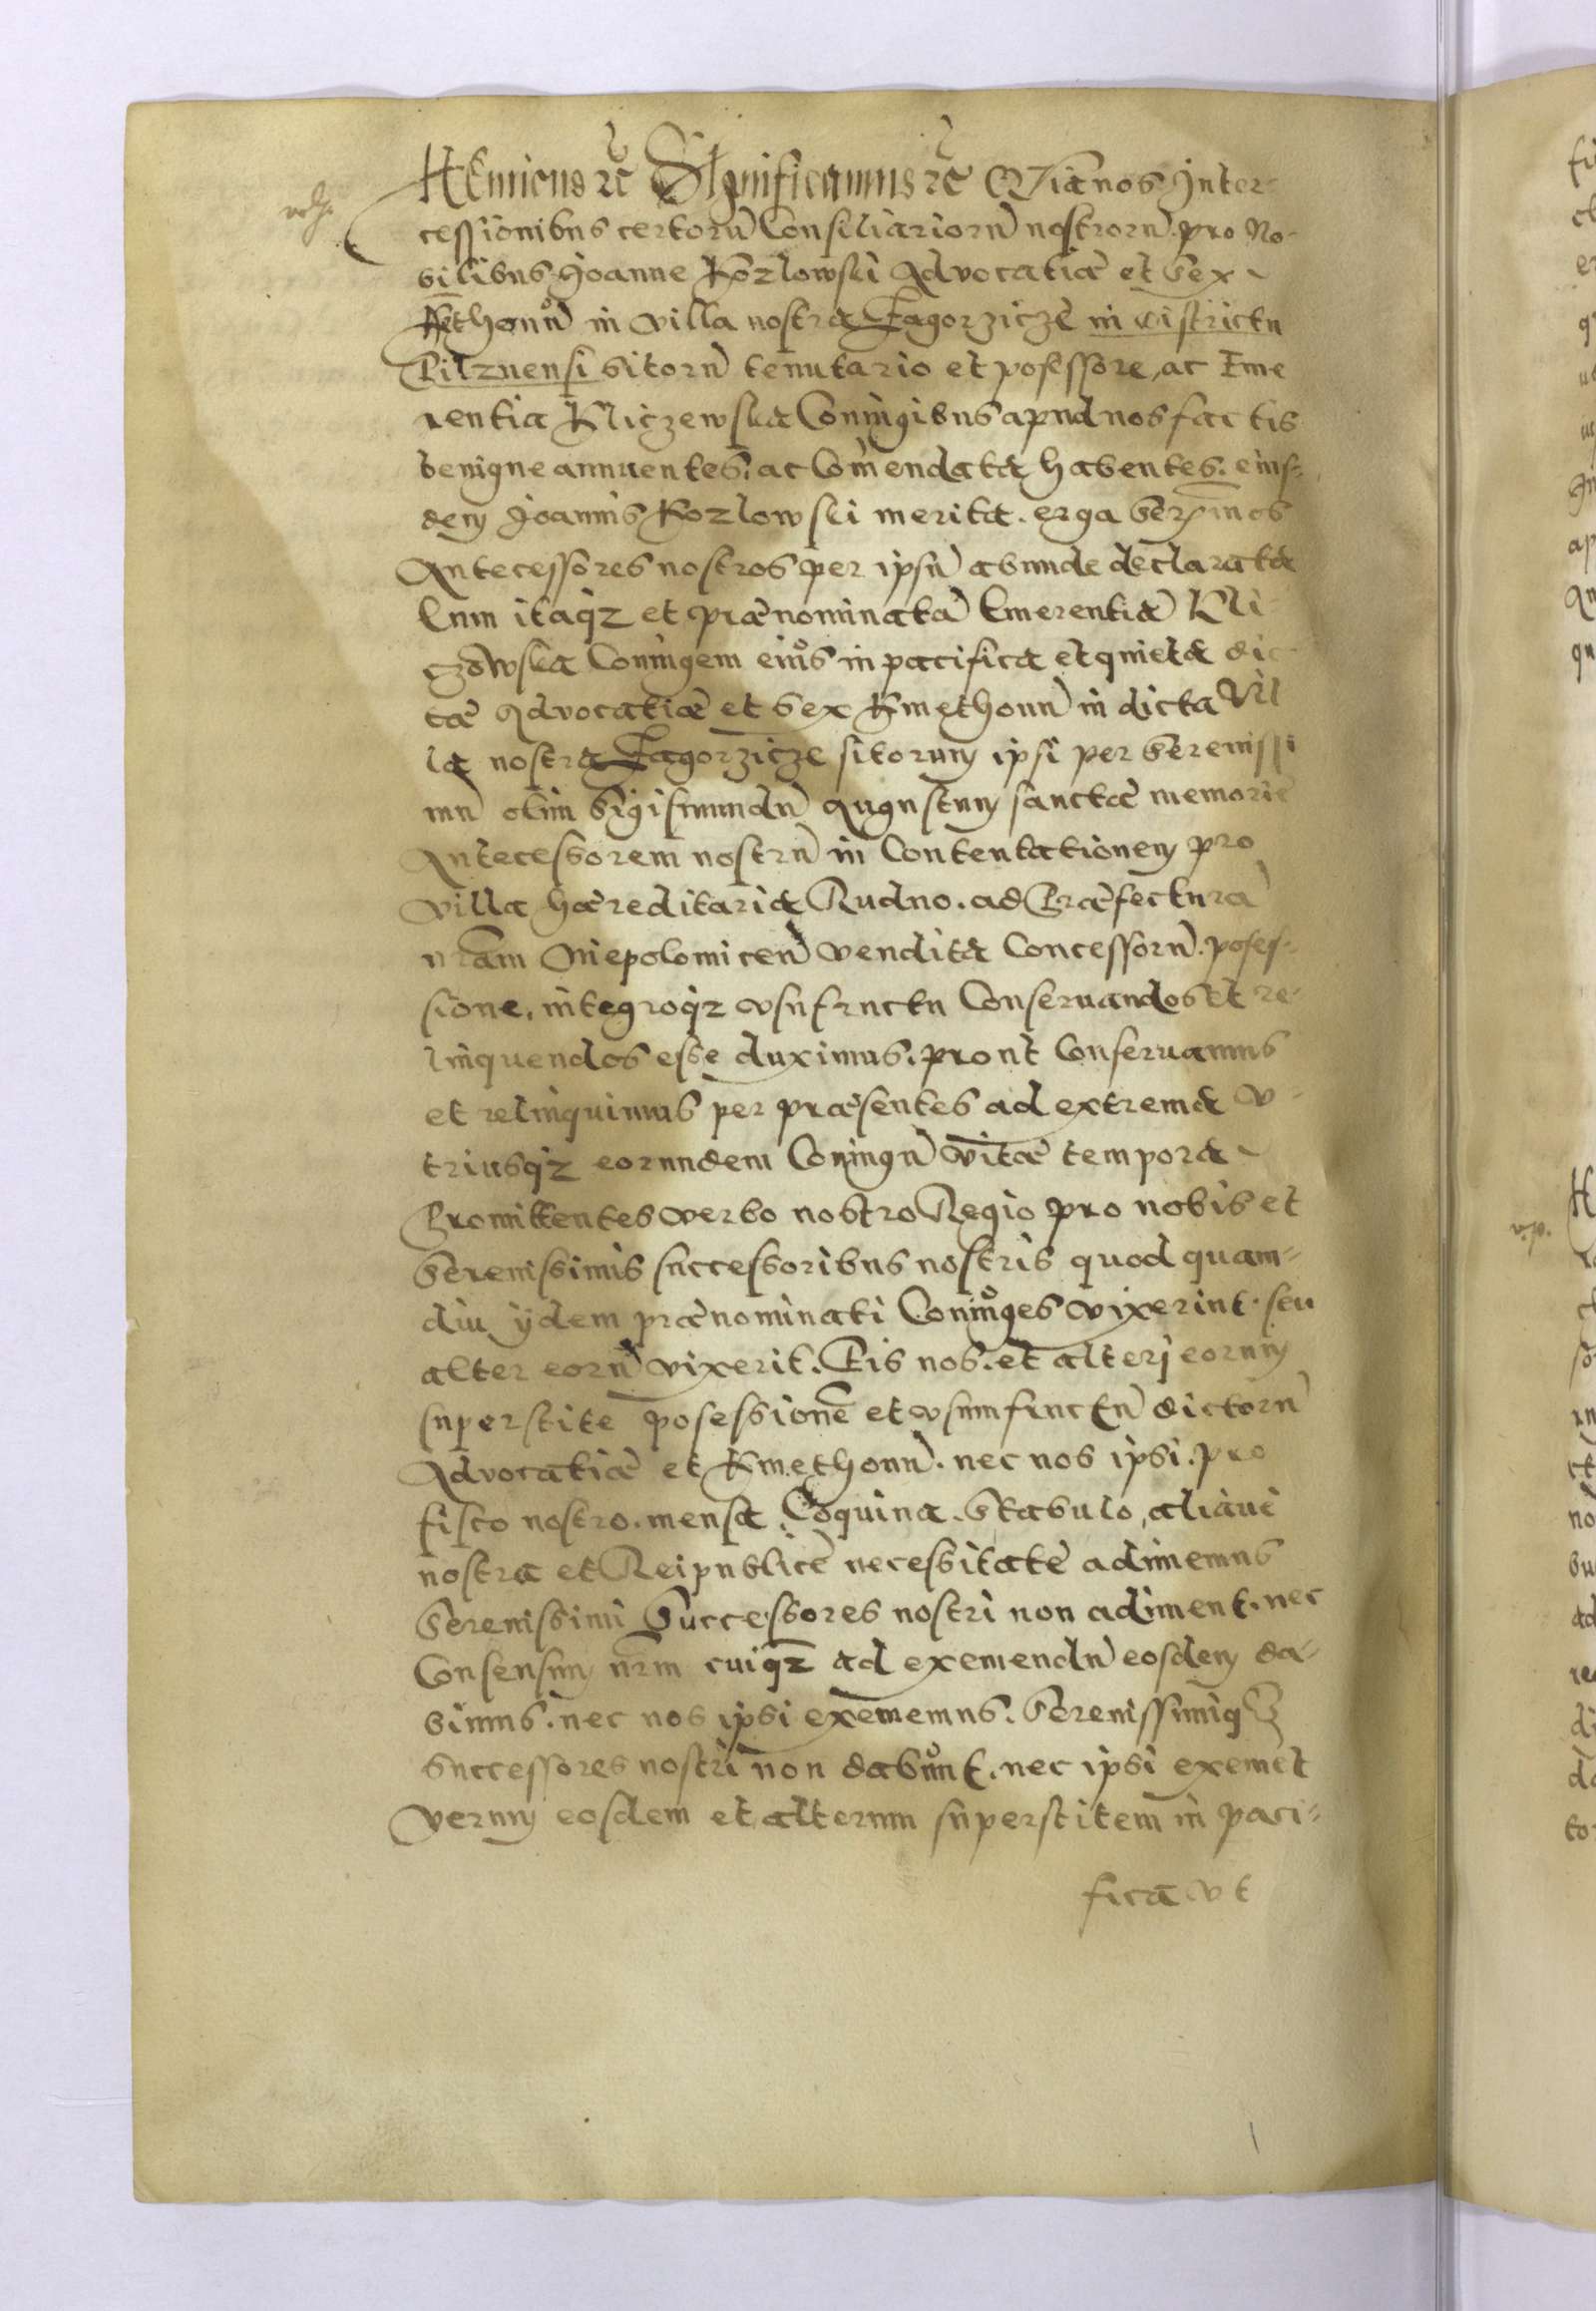 HEnricus etc Significamus etc Quia nos Inter-
cessionibus certorū Consiliariorū nostrorū. pro No-
bilibus Joanne Kozlowski Advocatiæ et sex
Kmethonū in villa nostra Zagorzicze in districtu
Pilznensi sitorū tenutario et posessore, ac Eme
rentia Kliczewska Coniugibus apud nos factis
benigne annuentes. ac Comendata habentes. eius-
dem Joannis Kozlowski merita. erga Serēmos
Antecessores nostros per ipsū abunde declarata
Eum itaqz et prænominatā Emerentiā Kli-
czowska Coniugem eius in pacifica et quieta dic-
tæ Advocatiæ et sex Kmethonū in dicta Vil
la nostra Zagorzicze sitorum ipsi per Serenissi
mū olim Sigismundū Augustum sanctæ memoriæ
Antecessorem nostrū in Contentationem pro
villa hæreditaria Rudno. ad Præfecturā
nr̄am Niepolomicen̄ vendita Concessorū. posses-
sione, integroqz vsufructu Conseruandos et re-
linquendos esse duximus. prout Conseruamus
et relinquimus per præsentes ad extrema v-
triusqz eorundem Coniugū vitæ tempora
Promittentes verbo nostro Regio pro nobis et
Serenissimis successoribus nostris quod quam-
diu ijdem prænominati Coniuges vixerint. seu
alter eorū vixerit. Eis nos. et alteri eorum
superstite posessionē et vsumfructū dictorū
Advocatiæ et Kmethonū. nec nos ipsi. pro
fisco nostro. mensa Coquina. Stabulo, aliave
nostra et Reipublicē necessitate adimemus
Serenissimi Successores nostri non adiment. nec
Consensum nr̄m cuiqz ad exemendū eosdem da-
bimus. nec nos ipsi exememus. Serenissimiqz
successores nostri non dabunt. nec ipsi exemēt
verum eosdem et alterum superstitem in paci-
ficā vt